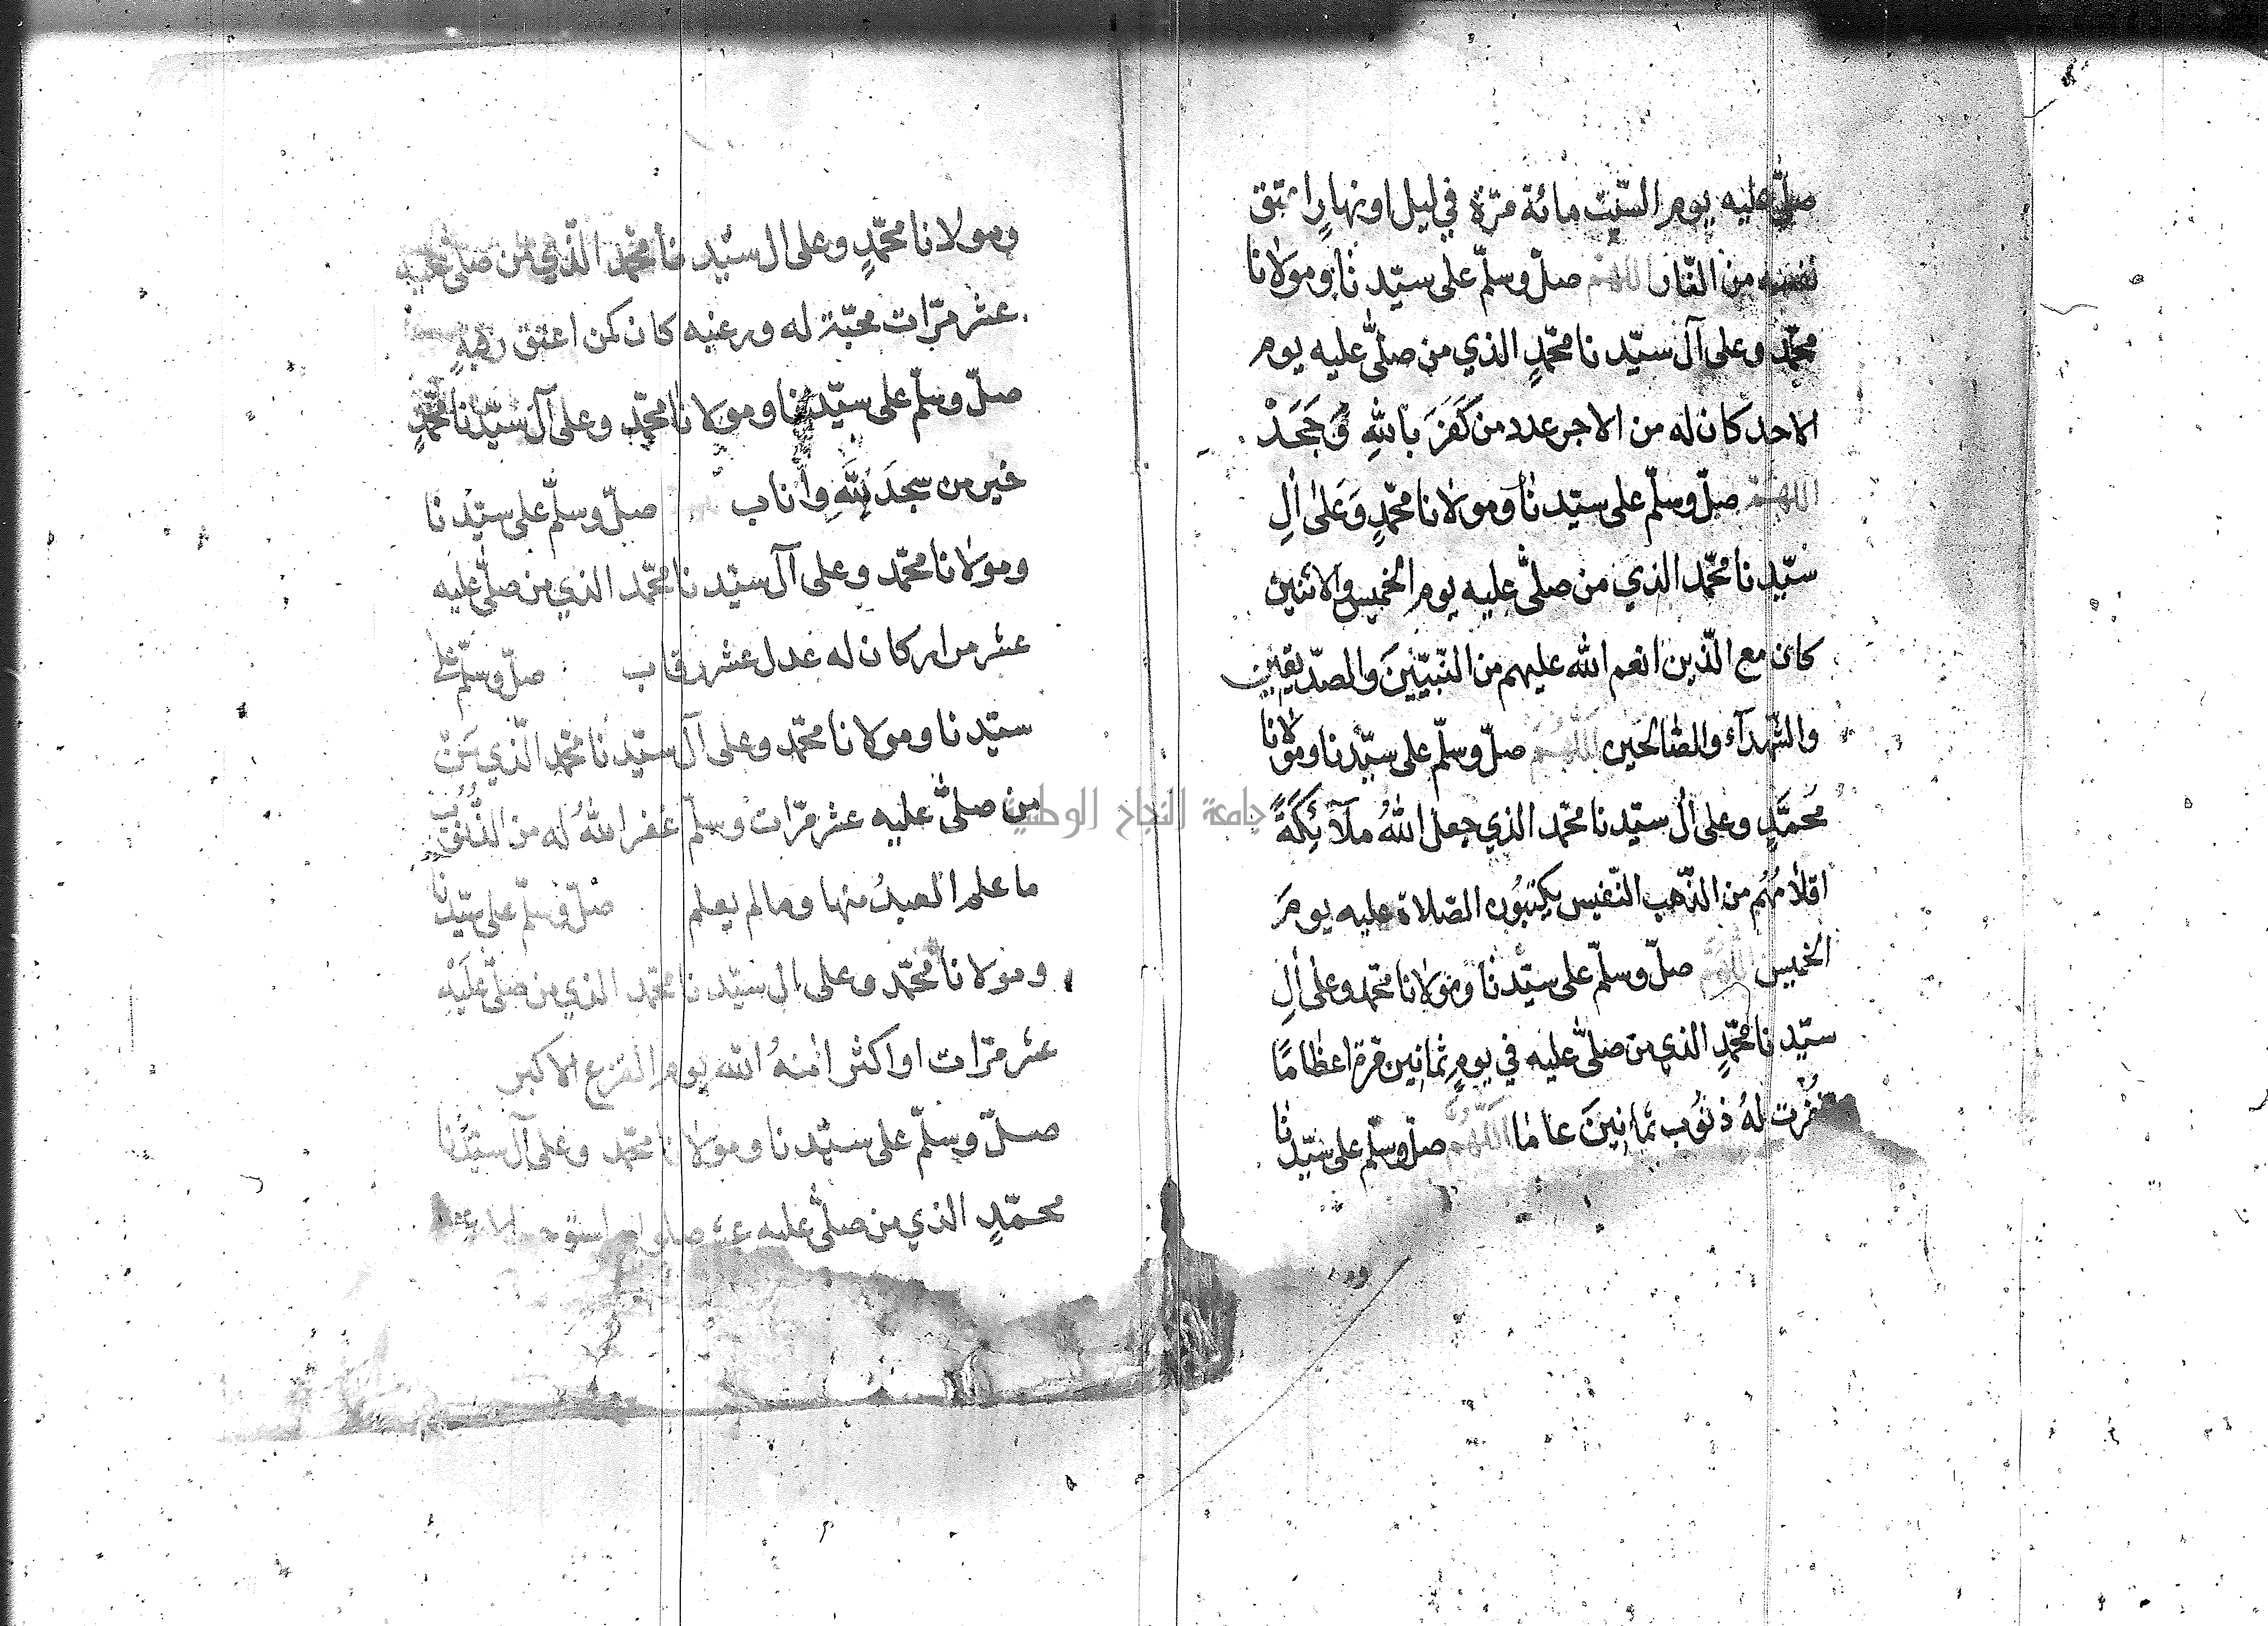 صلّى عليه يوم السّبت مائة مرّة في ليل او نهارٍ اعتق
نفسه من النّار اللهمّ صلّ وسلّم على سيّدنا ومولانا
محمّد وعلى آل سيّدنا محمّدٍ الذي من صلّى عليه يوم
الاحد كان له من الاجر عدد من كَفَرَ بالله وَجَحَدْ
اللهمّ صلّ وسلّم على سيّدنا ومولانا محمّدٍ وَعَلى اٰلِ
سيّدنا محمّد الذي من صلّى عليه يوم الخميس والاثنين
كان مع الّذين انعم الله عليهم من النّبيّينَ والصدّيقين
والشّهدآء والصّالحين اللهمّ صلّ وسلّم على سيّدنا ومولانا
مُحمَّدٍ وعلى اٰل سيّدنا محمّد الذي جعل اللهُ ملآئكةً
اقلامُهُم من الذّهب النّفيس يكتبُون الصّلاة عليه يومَ
الخميس اللهمّ صلّ وسلّم على سيّدنا ومولانا محمّد وعلى اٰلِ
سيّدنا محمّدٍ الذي من صلّى عليه في يومٍ ثمانين مرة اعظامًا
غُفرت لهُ ذنُوب ثمانينَ عاما اللّهُمّ صلّ وسلّم على سيّدنا
ومولانا محمّدٍ وعلى ال سيّدنا محمّد الّذي من صلّى عليه
عشر مرّات محبّة له ورغبه كان كمن اعتق رقبةٍ
صلّ وسلّم على سيّدنا ومولانا محمّد وعلى آل سيّدنا محمّدٍ
خير من سجَدَ لِلَّهِ واناب صلّ وسلّم على سيّدنا
ومولانا محمّد وعلى آل سيّدنا محمّد الذي من صلّى عليه
عشر مرار كان له عدل عشر رقاب صلّ وسلّم على
سيّدنا ومولانا محمّد وعلى آل سيّدنا محمّد الّذي
من صلّى عليه عشر مرّات وسلّم غفر اللهُ له من الذّنوب
ما علم العبدُ منها وما لم يعلم صلّ وسلّم على سيّدنا
ومولانا محمّد وعلى ال سيّدنا محمّد الذي من صلّى عليْه
عشر مرّات او اكثر امنهُ الله يوم الفزع الاكبر
صلّ وسلّم على سيّدنا ومولانا محمّد وعلى آل سيّدنا
محمّدٍ الذي من صلّى عليه عشر
جامعة النجاح الوطنية